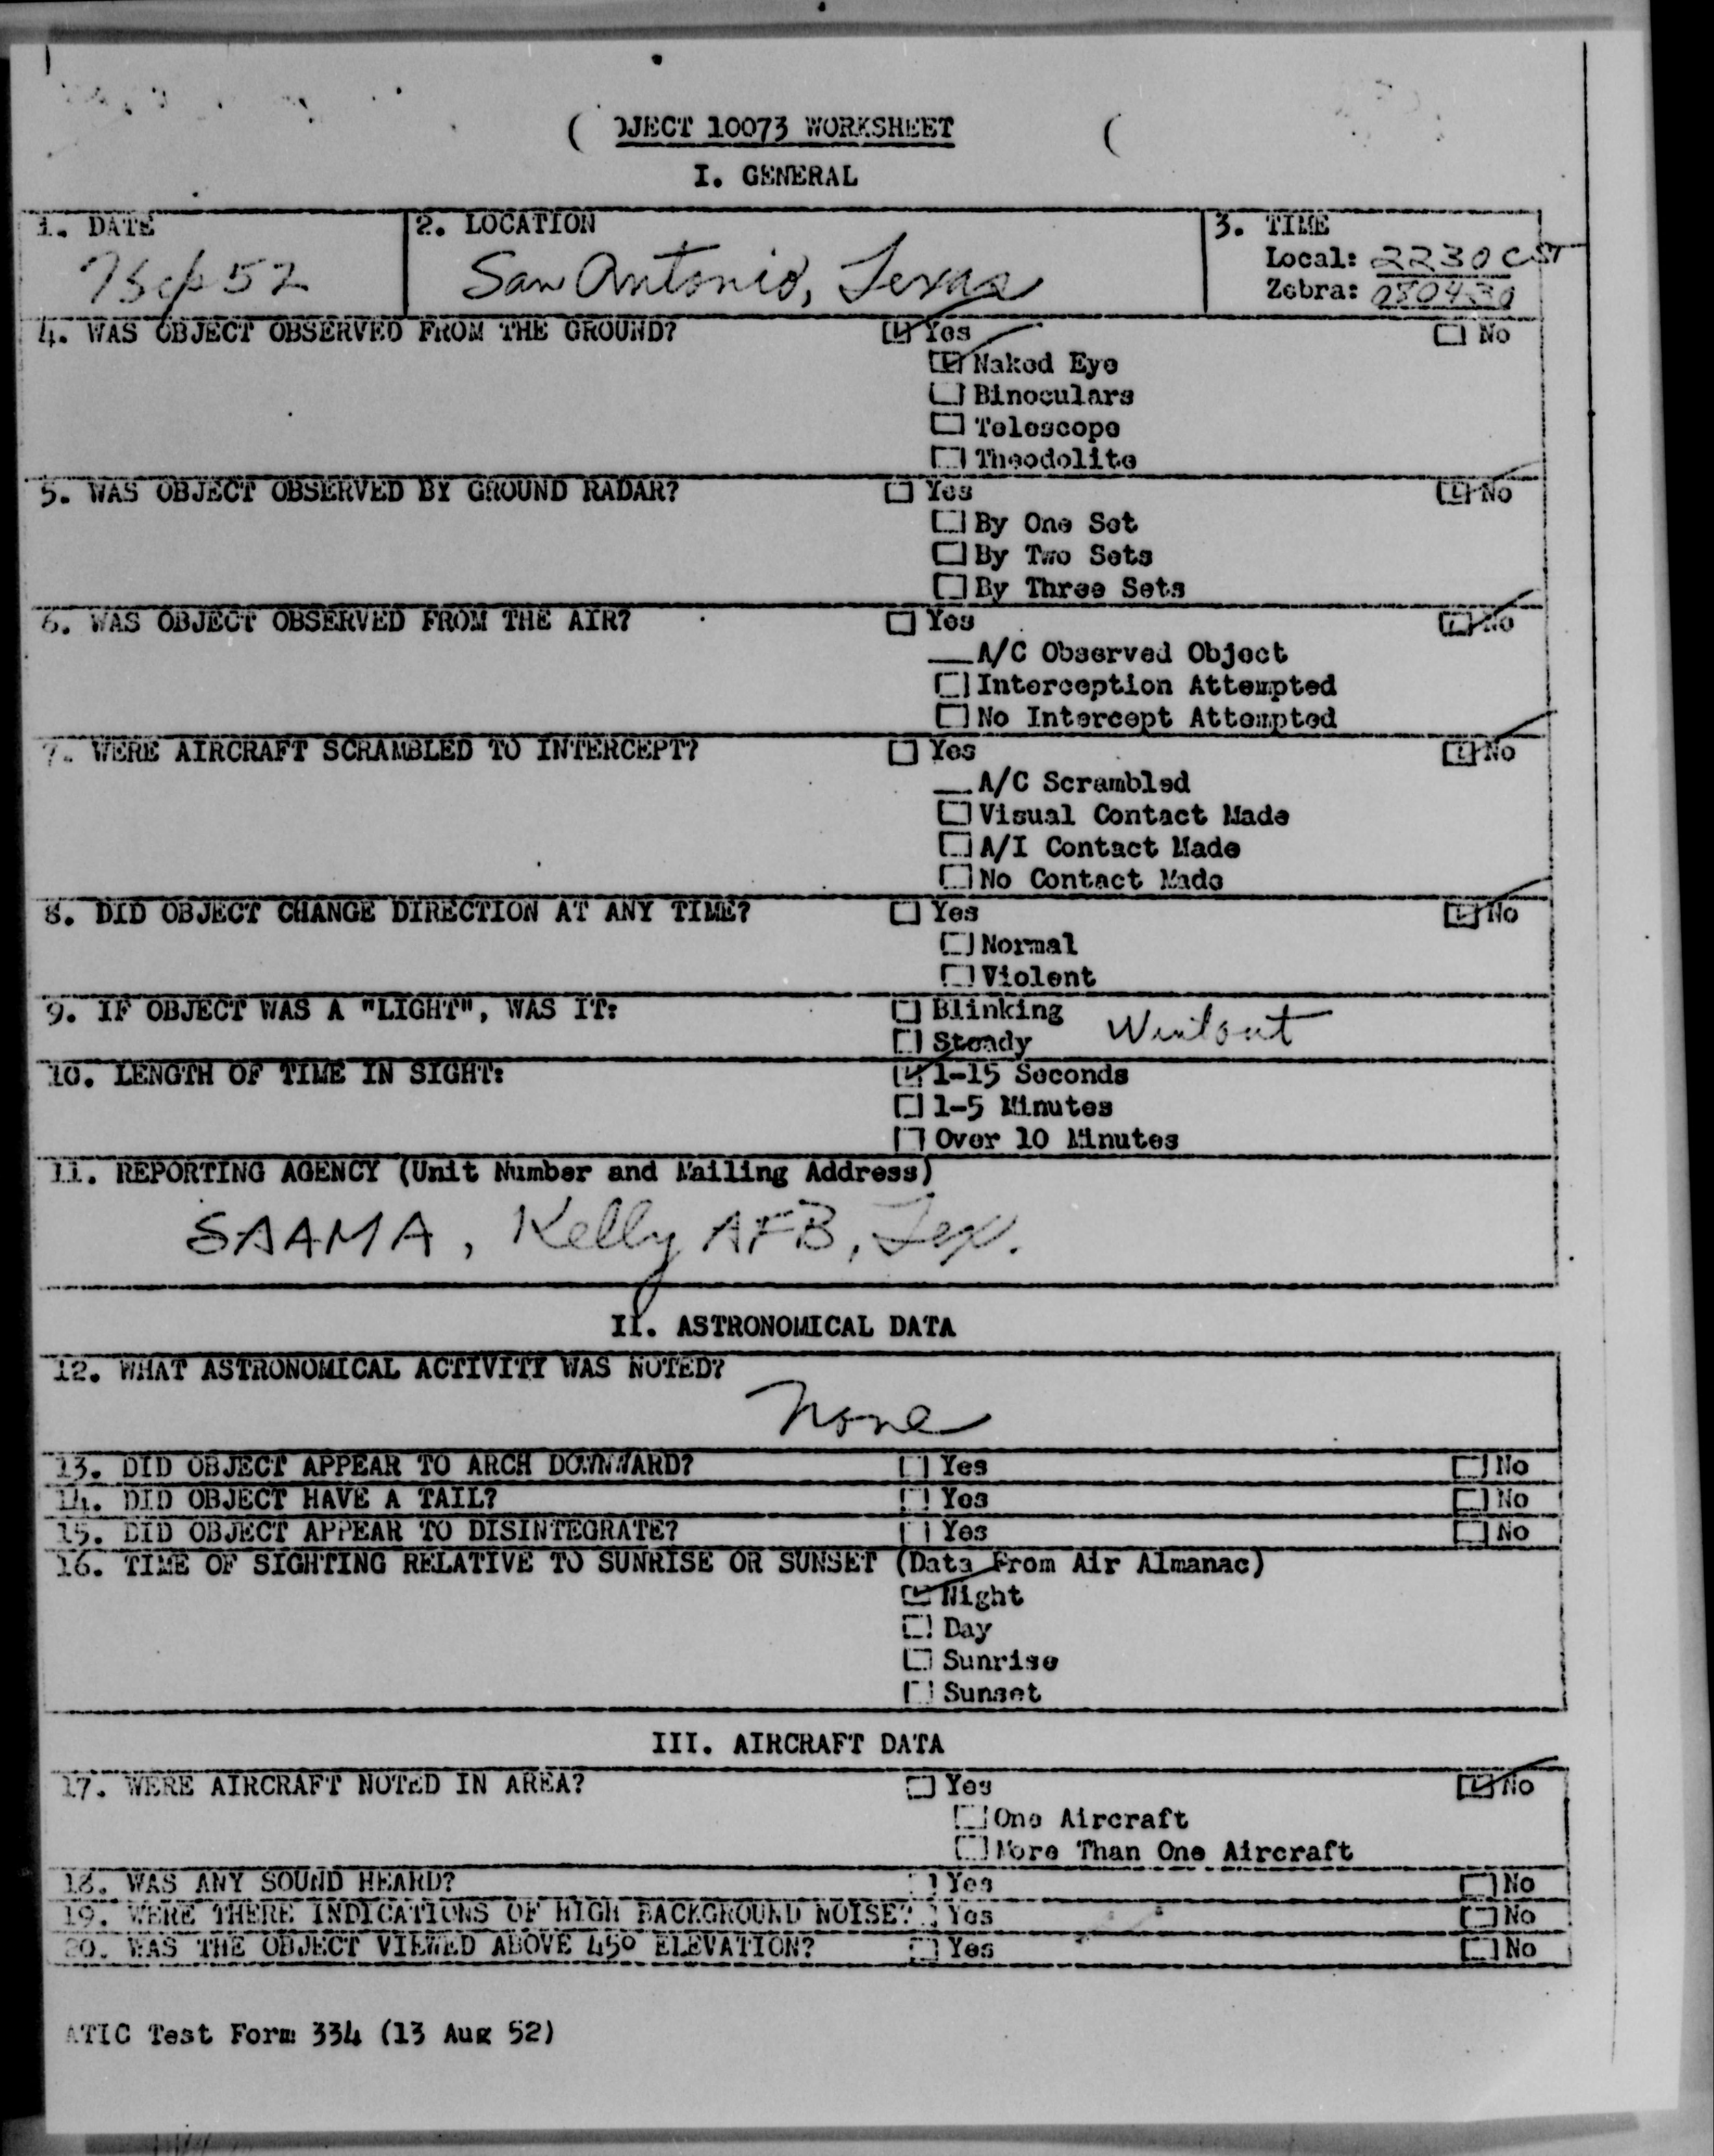 OJECT 10073 WORKSHEET
I. GENERAL
1. DATE
7 Sep 52
2. LOCATION
San Antonio, Texas
3. TIME
Local: 2230 CST
Zebra: 080430
4. WAS OBJECT OBSERVED FROM THE GROUND? Yes No
Naked Eye
Binoculars
Telescope
Theodolite
5. WAS OBJECT OBSERVED BY GROUND RADAR? Yes No
By One Set
By Two Sets
By Three Sets
6. WAS OBJECT OBSERVED FROM THE AIR? Yes No
A/C Observed Object
Interception Attempted
No Intercept Attempted
7. WERE AIRCRAFT SCRAMBLED TO INTERCEPT? Yes No
A/C Scrambled
Visual Contact Made
A/I Contact Made
No Contact Made
8. DID OBJECT CHANGE DIRECTION AT ANY TIME? Yes No
Normal
Violent
9. IF OBJECT WAS A "LIGHT", WAS IT: Blinking
Steady Went out
10. LENGTH OF TIME IN SIGHT: 1-15 Seconds
1-5 Minutes
Over 10 Minutes
11. REPORTING AGENCY (Unit Number and Mailing Address)
SAAMA, Kelly AFB, Tex.
II. ASTRONOMICAL DATA
12. WHAT ASTRONOMICAL ACTIVITY WAS NOTED?
None
13. DID OBJECT APPEAR TO ARCH DOWNWARD? Yes No
14. DID OBJECT HAVE A TAIL? Yes No
15. DID OBJECT APPEAR TO DISINTEGRATE? Yes No
16. TIME OF SIGHTING RELATIVE TO SUNRISE OR SUNSET (Data From Air Almanac)
Night
Day
Sunrise
Sunset
III. AIRCRAFT DATA
17. WERE AIRCRAFT NOTED IN AREA? Yes No
One Aircraft
More Than One Aircraft
18. WAS ANY SOUND HEARD? Yes No
19. WERE THERE INDICATIONS OF HIGH BACKGROUND NOISE? Yes No
20. WAS THE OBJECT VIEWED ABOVE 45° ELEVATION? Yes No
ATIC Test Form 334 (13 Aug 52)